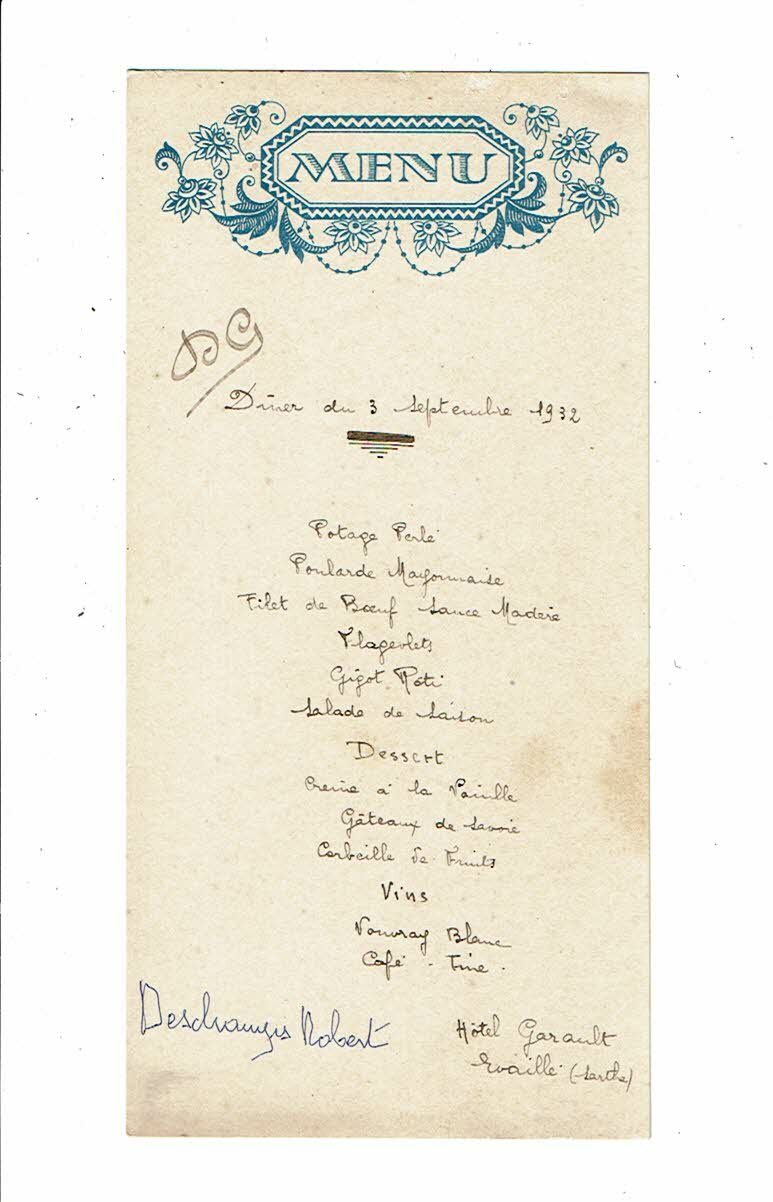 MENU
DG
Dîner du 3 Septembre 1932
Potage Perlé
Poularde Mayonnaise
Filet de Bœuf Sauce Madère
Flageolets
Gigot Rôti
Salade de Saison
Dessert
Crème à la Vanille
Gâteaux de Savoie
Corbeille de Fruits
Vins
Vouvray Blanc
Café - Fine -
Deschamps Robert
Hôtel Garault
Evaillé (Sarthe)